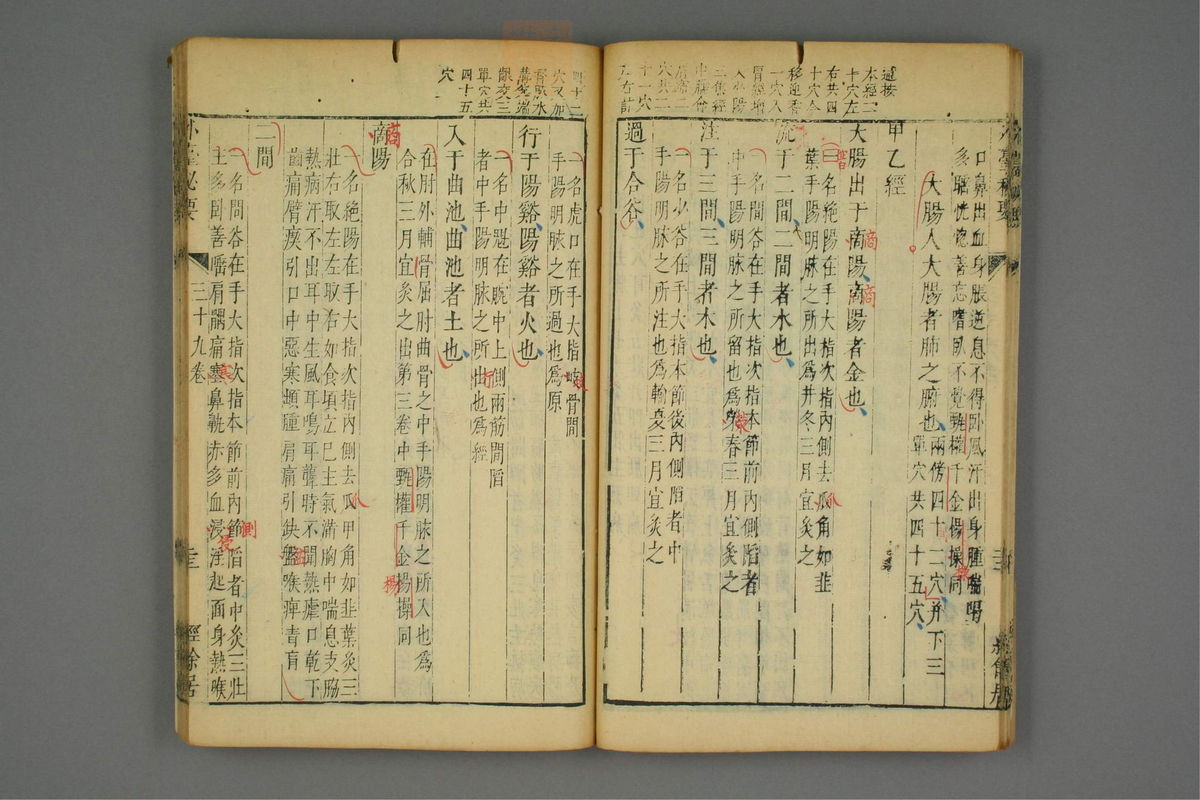 口鼻出血身脹逆息不得臥風汗出身腫喘喝
多睡恍惚善忘嗜臥不覺甄權千金楊操同
大腸人大腸者肺之腑也兩傍四十二穴并下三
單穴共四十五穴
甲乙經
大腸出于商陽商陽者金也
一名絶陽在手大指次指内側去爪角如韭
葉手陽明脉之所出為井冬三月宜灸之
流于二間二間者水也
一名間谷在手大指次指本節前内側䧟者
中手陽明脉之所留也為滎春三月宜灸之
注于三間三間者木也
一名少谷在手大指本節後内側䧟者中
手陽明脉之所注也為輸夏三月宜灸之
過于合谷
遠按
本經二
十穴左
右共四
十穴今
移迎香
一穴入
胃經增
三焦經
十一穴
一名虎口在手大指岐骨間
手陽明脉之所過也為原
行于陽谿陽谿者火也
一名中魁在腕中上側兩筋間䧟
者中手陽明脉之所出也為經
入于曲池曲池者土也
在肘外輔骨屈肘曲骨之中手陽明脉之所入也為
合秋三月宜灸之出第三卷中甄權千金楊操同
商陽
一名絶陽在手大指次指内側去爪甲角如韭葉灸三
壯右取左左取右如食頃立已主氣滿胸中喘息支脇
熱病汗不出耳中生風耳鳴耳聾時不聞熱瘧口乾下
齒痛臂瘈引口中惡寒䪼腫肩痛引缺盤喉痺青盲
二間
一名間谷在手大指次指本節前内節䧟者中灸三壯
主多卧善唾肩髃痛塞鼻鼽赤多血浸淫起面身熱喉
外臺秘要
三十九卷
經餘居
四十二
單穴共
四十五
穴